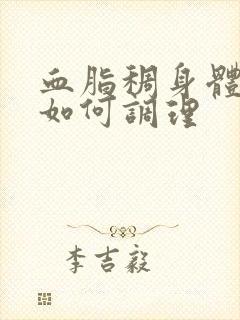 血脂稠身體
如何調理
李吉毅